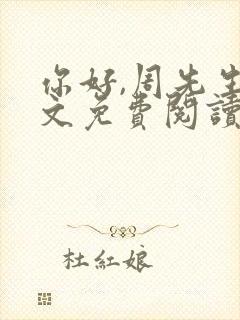 你好,周先生
文免費閱讀
杜紅娘